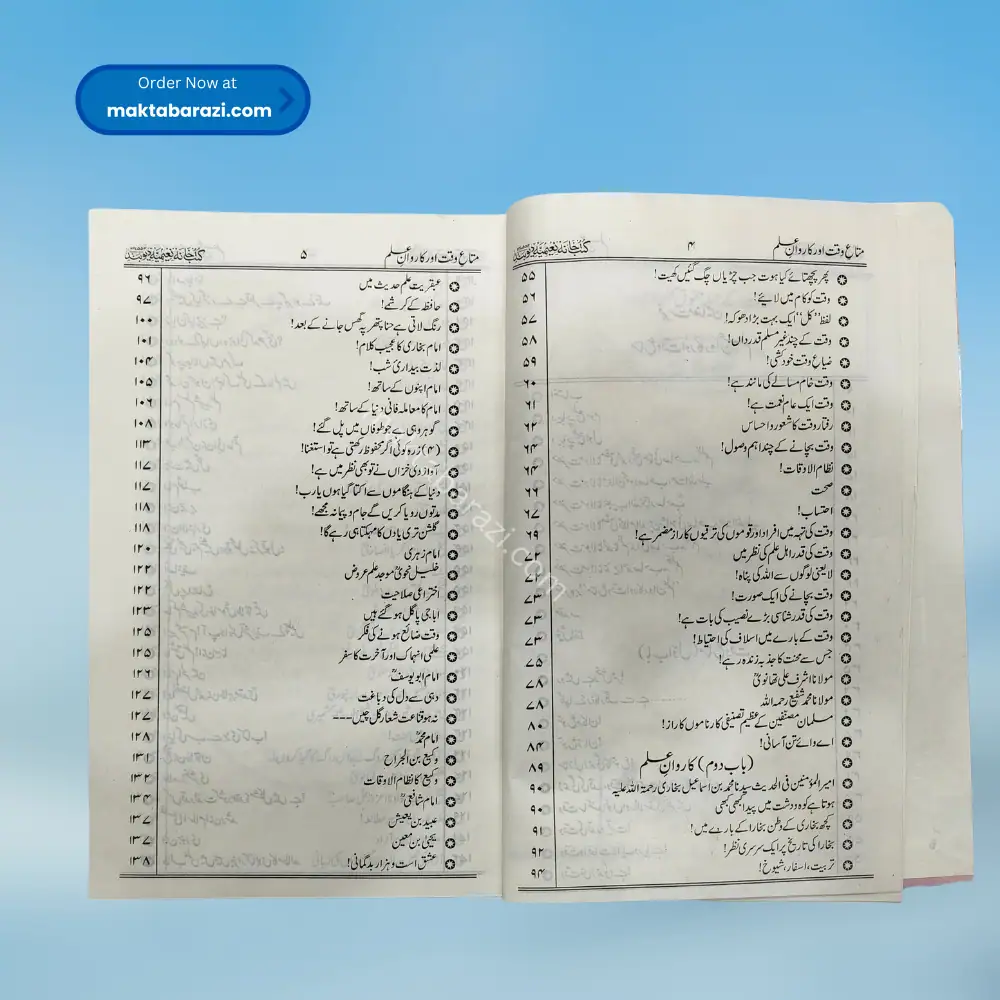 Order Now at
maktabarazi.com
متاع وقت اور کاروان علم ۴ کتب خانہ نعیمیہ دیوبند
پھر پچھتائے کیا ہوت جب چڑیاں چگ گئیں کھیت! ۵۵
وقت کو کام میں لایئے! ۵۶
لفظ "کل" ایک بہت بڑا دھوکہ! ۵۷
وقت کے چند غیر مسلم قدرداں! ۵۸
ضیاع وقت خودکشی! ۵۹
وقت خام مسالے کی مانند ہے! ۶۰
وقت ایک عام نعمت ہے! ۶۱
رفتار وقت کا شعور و احساس ۶۲
وقت بچانے کے چند اہم وصول! ۶۴
نظام الاوقات! ۶۴
صحت ۶۶
احتساب! ۶۷
وقت کی تہہ میں افراد اور قوموں کی ترقیوں کا راز مضمر ہے! ۶۹
وقت کی قدر اہل علم کی نظر میں ۷۲
لایعنی لوگوں سے اللہ کی پناہ! ۷۲
وقت بچانے کی ایک صورت! ۷۳
وقت کی قدر شناسی بڑے نصیب کی بات ہے! ۷۳
وقت کے بارے میں اسلاف کی احتیاط! ۷۳
جس سے محنت کا جذبہ زندہ رہے! ۷۵
مولانا اشرف علی تھانویؒ ۷۸
مولانا محمد شفیع رحمہ اللہ ۷۸
مسلمان مصنفین کے عظیم تصنیفی کارناموں کا راز! ۸۰
اے وائے تن آسانی! ۸۴
(باب دوم) کاروان علم ۸۹
امیر المؤمنین فی الحدیث سیدنا محمد بن اسماعیل بخاری رحمۃ اللہ علیہ ۹۰
ہوتا ہے کوہ و دشت میں پیدا کبھی کبھی ۹۰
کچھ بخاری کے وطن بخارا کے بارے میں! ۹۱
بخارا کی تاریخ پر ایک سرسری نظر! ۹۲
تربیت، اسفار، شیوخ! ۹۴
متاع وقت اور کاروان علم ۵ کتب خانہ نعیمیہ دیوبند
عبقریت علم حدیث میں ۹۶
حافظہ کے کرشمے! ۹۷
رنگ لاتی ہے حنا پتھر پہ گھس جانے کے بعد! ۱۰۰
امام بخاری کا عجیب کلام! ۱۰۱
لذت بیداریٔ شب! ۱۰۴
امام اپنوں کے ساتھ! ۱۰۵
امام کا معاملہ فانی دنیا کے ساتھ! ۱۰۶
گوہر وہی ہے جو طوفاں میں پل گئے! ۱۰۸
(۴) زرہ کوئی اگر محفوظ رکھتی ہے تو استغنا! ۱۱۳
آواز دی خزاں نے تو بھی نظر میں ہے! ۱۱۷
دنیا کے ہنگاموں سے اکتا گیا ہوں یارب! ۱۱۷
مدتوں رویا کریں گے جام و پیمانہ مجھے! ۱۱۸
گلشن تری یادوں کا مہکتا ہی رہے گا! ۱۱۸
امام زہری ۱۲۰
خلیل نحویؒ موجد علم عروض ۱۲۲
اختراعی صلاحیت ۱۲۲
ابا جی پاگل ہو گئے ہیں ۱۲۳
وقت ضائع ہونے کی فکر ۱۲۵
علمی انہماک اور آخرت کا سفر ۱۲۵
امام ابویوسفؒ ۱۲۶
دہی سے دل کی دباغت ۱۲۷
نہ ہو قناعت شعار گل چیں۔۔۔ ۱۲۷
امام محمدؒ ۱۲۸
وکیع بن الجراح ۱۳۱
وکیع کا نظام الاوقات ۱۳۲
امام شافعیؒ ۱۳۴
عبید بن یعیش ۱۳۷
یحییٰ بن معین ۱۳۷
عشق است و ہزار بدگمانی! ۱۳۸